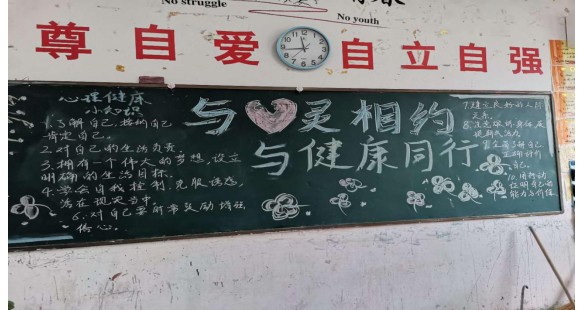 No struggle
No youth
尊自爱 自立自强
心理健康
小知识
1.了解自己,接纳自己
肯定自己。
2.对自己的生活负责。
3.拥有一个伟大的梦想,设立
明确的生活目标。
4.学会自我控制,克服诱惑,
活在现实当中。
6.对自己要经常鼓励 增强
信心。
与 灵相约
与健康同行
7.建立良好的人际
关系。
自己
正确评价
自己。
10.用行动
证明自己的
能力与价值